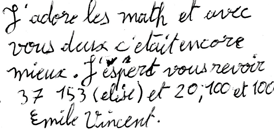 J'adore les math et avec
vous deux c'était encore
mieux. J'éspère vous revoir
37 153 (elise) et 20;100 et 100
Emile Vincent.